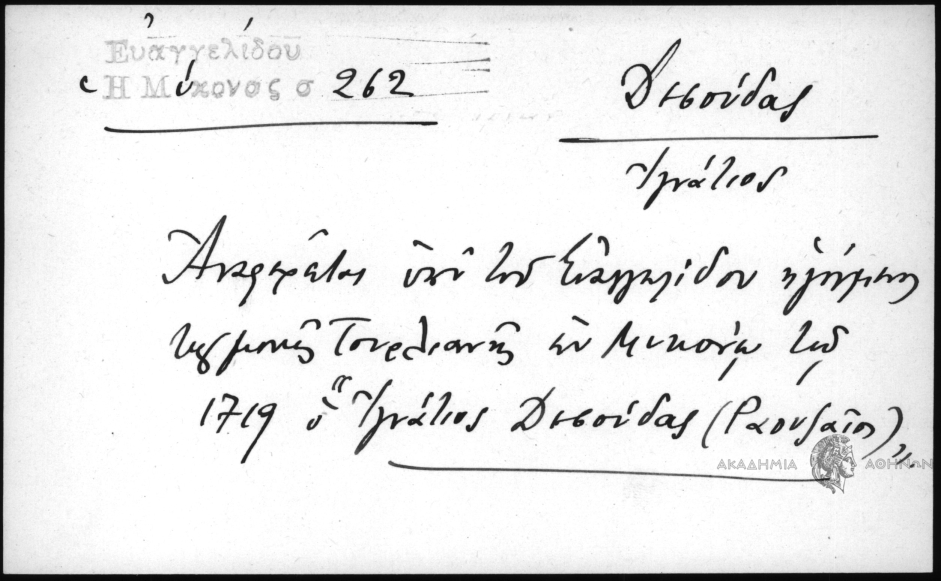 Εὐαγγελίδου
Ἡ Μύκονος σ 262
Δεσούδας
Ἰγνάτιος
Ἀναφέρεται ὑπὸ τοῦ Εὐαγγελίδου ἡγούμενος
τῆς μονῆς Τουρλιανῆς ἐν Μυκόνῳ τῷ
1719 ὁ "Ἰγνάτιος Δεσούδας (Ραουζαῖος)".
ΑΚΑΔΗΜΙΑ ΑΘΗΝΩΝ